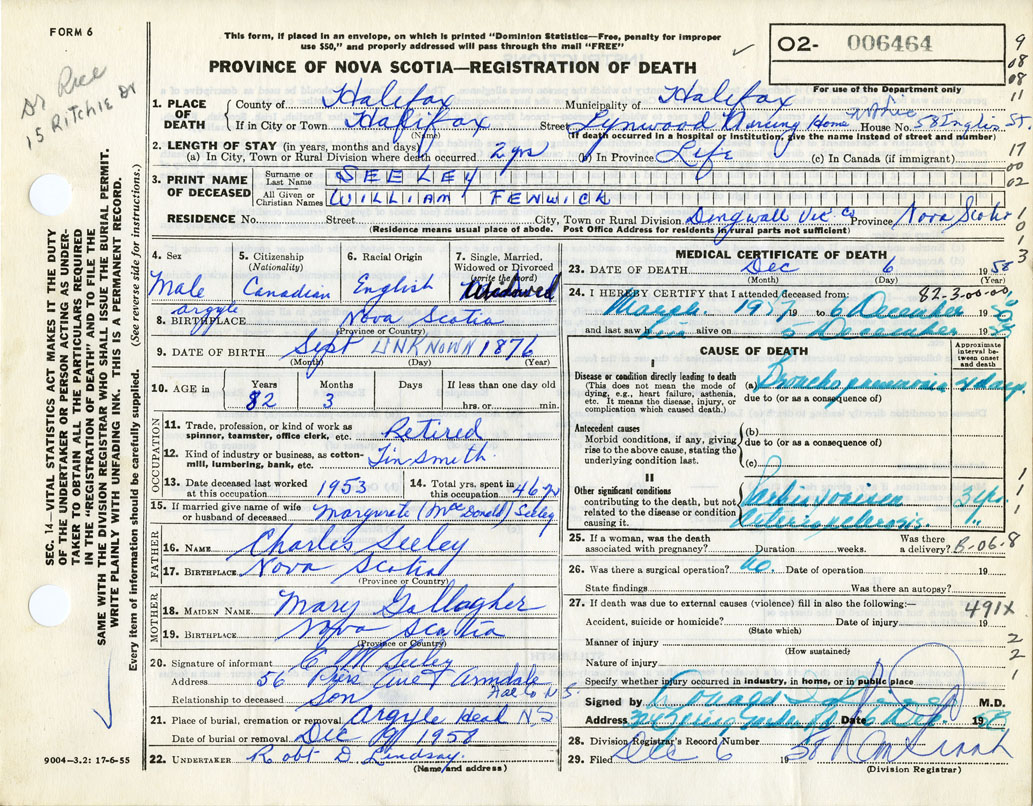 FORM 6
This form, if placed in an envelope, on which is printed "Dominion Statistics—Free, penalty for improper
use $50," and properly addressed will pass through the mail "FREE"
O2- 006464
For use of the Department only
PROVINCE OF NOVA SCOTIA—REGISTRATION OF DEATH
Dr Rice
15 Ritchie Dr
SEC. 14—VITAL STATISTICS ACT MAKES IT THE DUTY
OF THE UNDERTAKER OR PERSON ACTING AS UNDER-
TAKER TO OBTAIN ALL THE PARTICULARS REQUIRED
IN THE "REGISTRATION OF DEATH" AND TO FILE THE
SAME WITH THE DIVISION REGISTRAR WHO SHALL ISSUE THE BURIAL PERMIT.
WRITE PLAINLY WITH UNFADING INK. THIS IS A PERMANENT RECORD.
Every item of information should be carefully supplied. (See reverse side for instructions.)
1. PLACE OF DEATH
County of Halifax Municipality of Halifax
If in City or Town Halifax Street Lynwood Nursing Home House No. 58 Inglis St.
(Name) (If death occurred in a hospital or institution, give the name instead of street and number)
2. LENGTH OF STAY (in years, months and days)
(a) In City, Town or Rural Division where death occurred 2 yrs (b) In Province Life (c) In Canada (if immigrant)
3. PRINT NAME OF DECEASED
Surname or Last Name SEELEY
All Given or Christian Names WILLIAM FENWICK
RESIDENCE No. Street City, Town or Rural Division Dingwall Vic. Co Province Nova Scotia
(Residence means usual place of abode. Post Office Address for residents in rural parts not sufficient)
4. Sex Male
5. Citizenship (Nationality) Canadian
6. Racial Origin English
7. Single, Married, Widowed or Divorced (write the word) Widowed
8. BIRTHPLACE Argyle Nova Scotia
(Province or Country)
9. DATE OF BIRTH Sept UNKNOWN 1876
(Month) (Day) (Year)
10. AGE in Years 82 Months 3 Days If less than one day old hrs. or min.
OCCUPATION
11. Trade, profession, or kind of work as spinner, teamster, office clerk, etc. Retired
12. Kind of industry or business, as cotton-mill, lumbering, bank, etc. Tinsmith
13. Date deceased last worked at this occupation 1953
14. Total yrs. spent in this occupation 46
15. If married give name of wife or husband of deceased Margurete (McDonald) Seeley
FATHER
16. NAME Charles Seeley
17. BIRTHPLACE Nova Scotia
(Province or Country)
MOTHER
18. MAIDEN NAME Mary Gallagher
19. BIRTHPLACE Nova Scotia
(Province or Country)
20. Signature of informant C M Seeley
Address 56 Ave Armdale
Hal Co N.S.
Relationship to deceased Son
21. Place of burial, cremation or removal Argyle Head N.S
Date of burial or removal Dec 1958
22. UNDERTAKER Robt D. Lindsay
(Name and address)
9004—3.2: 17-6-55
MEDICAL CERTIFICATE OF DEATH
23. DATE OF DEATH Dec 6 1958
(Month) (Day) (Year)
82-3-00-00
24. I HEREBY CERTIFY that I attended deceased from:
March 1957 to 6 December 19
and last saw him alive on 5 December 19
CAUSE OF DEATH
Approximate interval between onset and death
I
Disease or condition directly leading to death
(This does not mean the mode of dying, e.g., heart failure, asthenia, etc. It means the disease, injury, or complication which caused death.)
(a) Bronchopneumonia 4 days
due to (or as a consequence of)
Antecedent causes
Morbid conditions, if any, giving rise to the above cause, stating the underlying condition last.
(b)
due to (or as a consequence of)
(c)
II
Other significant conditions
contributing to the death, but not related to the disease or condition causing it.
Parkinsonism 3 yrs.
Arteriosclerosis. "
25. If a woman, was the death associated with pregnancy? Duration weeks. Was there a delivery?
B-06-8
26. Was there a surgical operation? No. Date of operation 19
State findings Was there an autopsy?
27. If death was due to external causes (violence) fill in also the following:—
491X
Accident, suicide or homicide? Date of injury 19
(State which)
Manner of injury
(How sustained)
Nature of injury
Specify whether injury occurred in industry, in home, or in public place
Signed by M.D.
Address Date 6 Dec. 19
28. Division Registrar's Record Number
29. Filed Dec 6 1958
(Division Registrar)
9
08
08
11
17
00
02
1
0
1
3
1
1
1
2
2
1